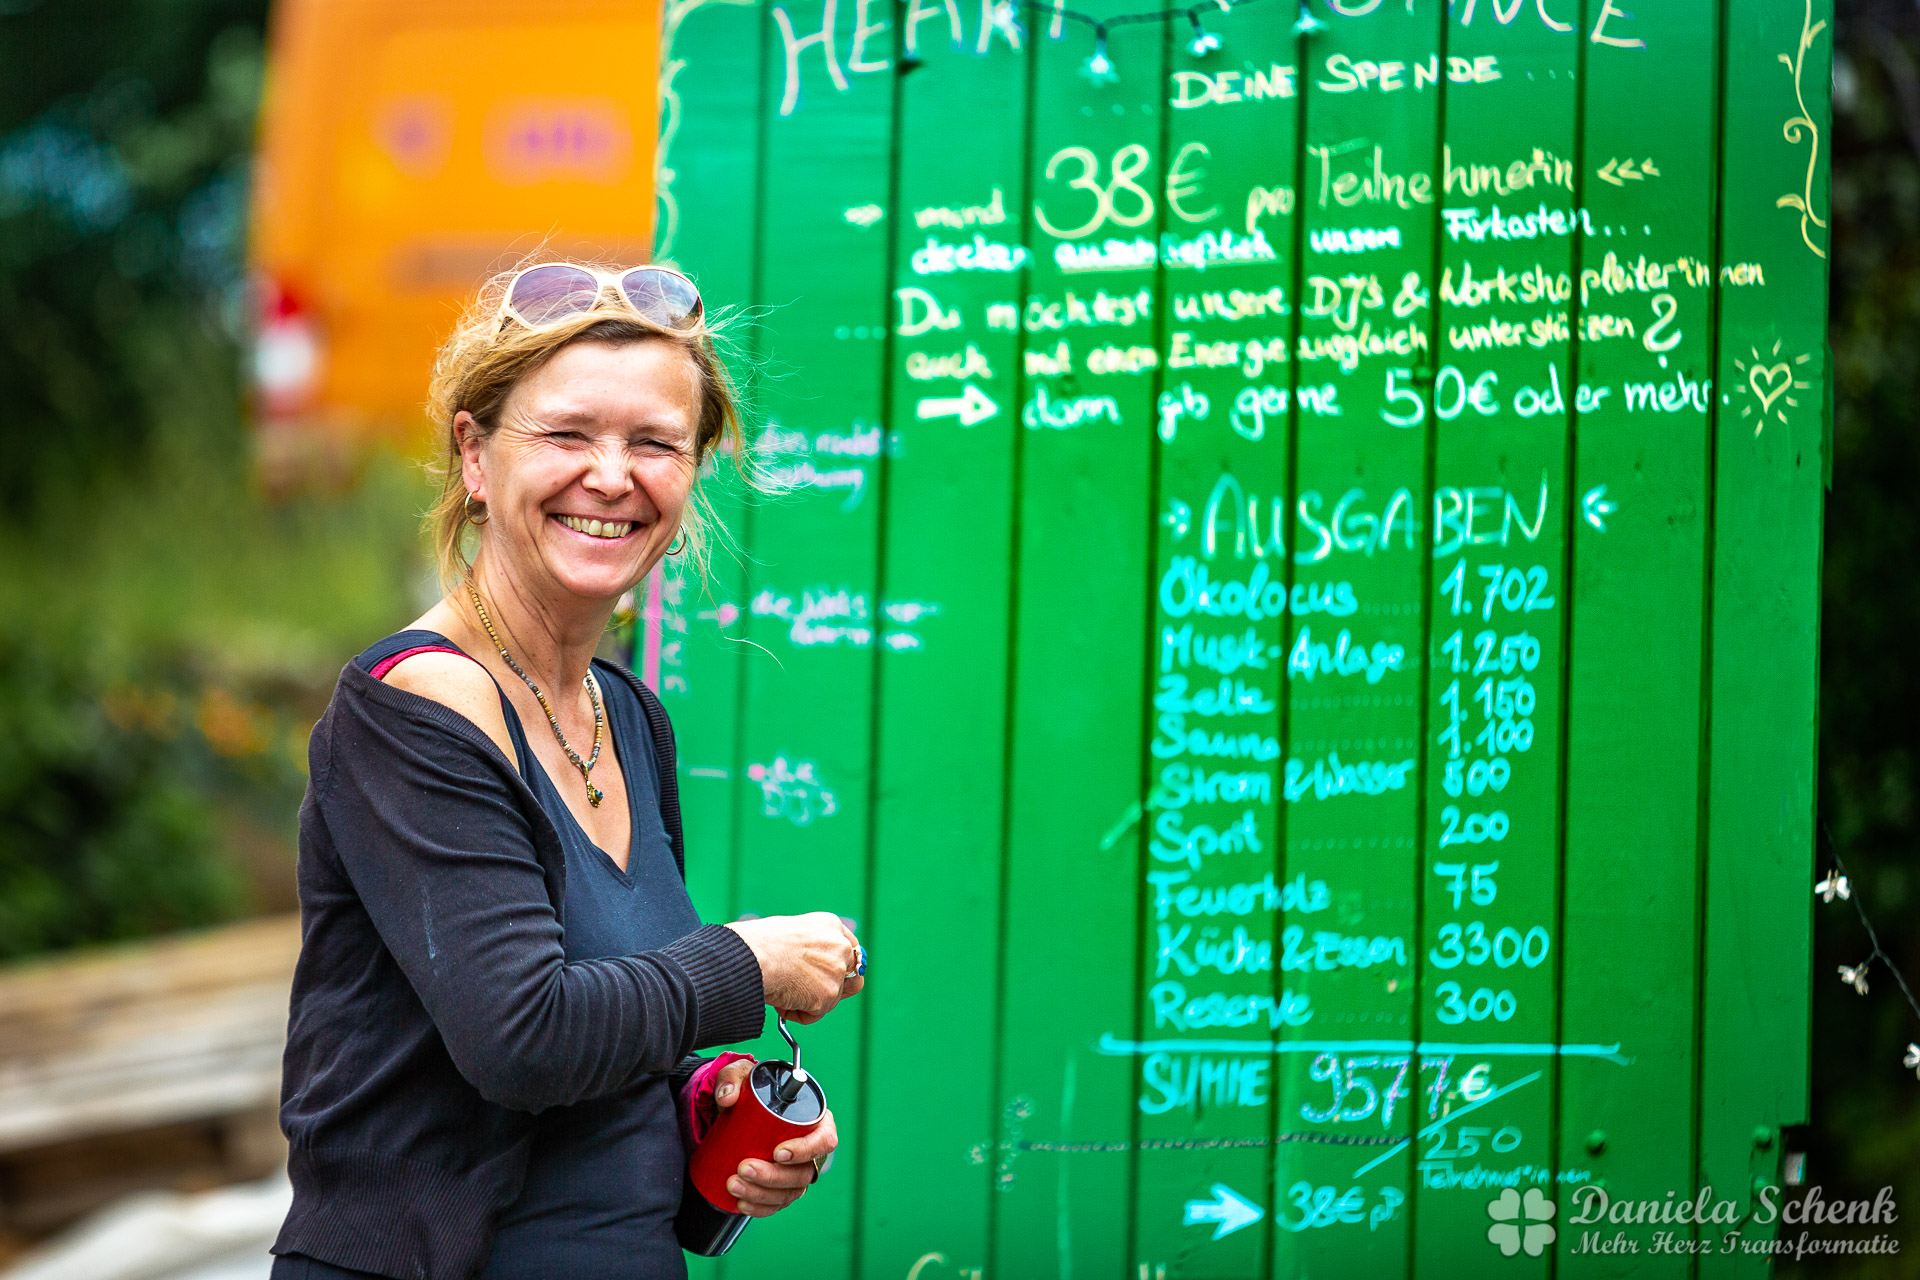 HEART
DEINE SPENDE ...
mind 38€ pro Teilnehmer*in <<<
decken ausschließlich unsere Fixkosten...
... Du möchtest unsere DJ's & Workshopleiter*innen
auch mit einen Energieausgleich unterstützen?
dann gib gerne 50€ oder mehr.
AUSGABEN
Ökolocus ...... 1.702
Musik-Anlage .. 1.250
Zelte 1.150
Sauna 1.100
Strom & Wasser 500
Sprit 200
Feuerholz 75
Küche & Essen 3300
Reserve 300
die
DJ's
SUMME 9577,€
250
Teilnehmer*innen
38€ p
Daniela Schenk
Mehr Herz Transformatie